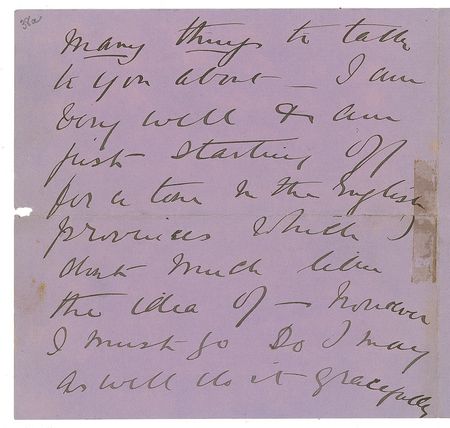 38a
many things to talk
to you about - I am
very well & am
just starting off
for a tour in the English
provinces which I
dont much like
the idea of - however
I must go so I may
as well do it gracefully